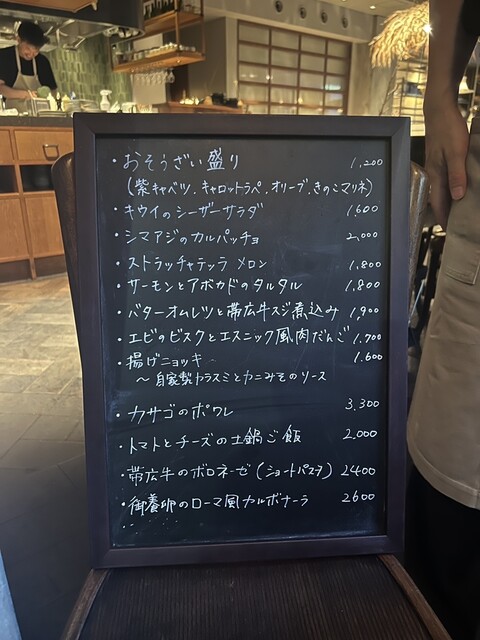 ・おそうざい盛り 1,200
(紫キャベツ、キャロットラペ、オリーブ、きのこマリネ)
・キウイのシーザーサラダ 1,600
・シマアジのカルパッチョ 2,000
・ストラッチャテッラ メロン 1,800
・サーモンとアボカドのタルタル 1,800
・バターオムレツと帯広牛スジ煮込み 1,900
・エビのビスクとエスニック風肉だんご 1,700
・揚げニョッキ 1,600
～自家製カラスミとカニみそのソース
・カサゴのポワレ 3,300
・トマトとチーズの土鍋ご飯 2,000
・帯広牛のボロネーゼ(ショートパスタ) 2400
・御養卵のローマ風カルボナーラ 2600